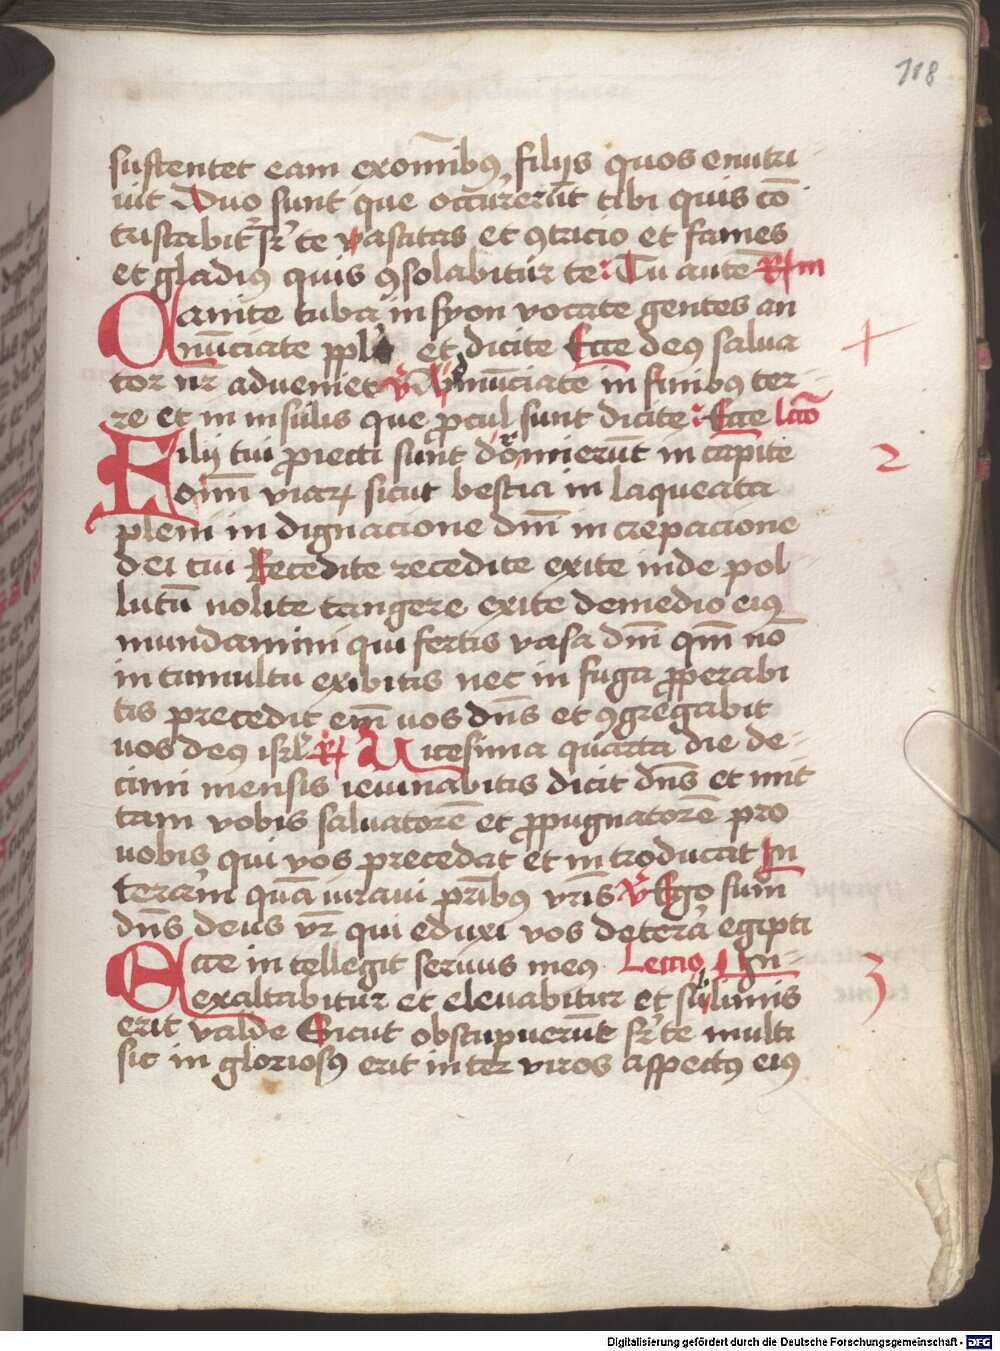 118
sustentet eam exom̄ibꝫ filijs quos enutri
uit Duo sunt que occurrerūt tibi quis cō
tristabit᷑ sr̄ te vastitas et ꝯtricio et fames
et gladiꝫ quis ꝯsolabitur te: Tu autē R̸m
Canite tuba in syon vocate gentes an
nūciate ppl̄s et dicite Ecce deꝫ salua
tor nr̄ adueniet v̄ Annūciate in finibꝫ ter-
re et in insulis que ꝓcul sunt dicite: Ecce lcō
+
Filij tui ꝓiecti sunt dormierūt in capite
2
om̄i viarꝝ sicut bestia in laqueata
pleni in dignacione dn̄i in crepacione
dei tui Recedite recedite exite inde pol
lutū nolite tangere exite demedio eiꝫ
mundamini qui fertis vasa dn̄i qm̄ nō
in tumultu exibitis nec in fuga ꝓperabi
tis precedit em̄ uos dn̄s et ꝯgregabit
uos deꝫ isrl̄ R̸ Uicesima quarta die de-
cimi mensis ieiunabitis dicit dn̄s et mit
tam vobis saluatorē et ꝓpugnatorē pro
uobis qui vos precedat et introducat In
terram quā iuraui prībꝫ vr̄is v̄ Ego sum
dn̄s deus vr̄ qui eduxi vos de terra egipti
Ecce intellegit seruus meꝫ Lectio In-
exaltabitur et eleuabitur et sublimis
3
erit valde Sicut obstupuerūt sr̄ te multi
sic in gloriosꝫ erit inter viros aspectꝫ eiꝫ
Digitalisierung gefördert durch die Deutsche Forschungsgemeinschaft - DFG